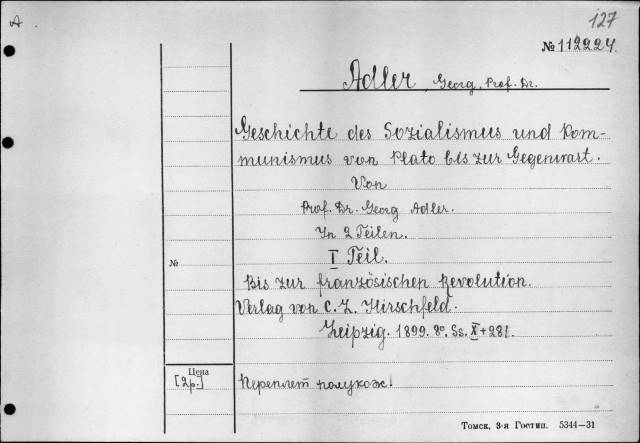 A
127
№ 112224.
Adler, Georg, Prof. Dr.
Geschichte des Sozialismus und Kom-
munismus von Plato bis zur Gegenwart.
Von
Prof. Dr. Georg Adler.
In 2 Teilen.
I Teil.
№
Bis zur französischen Revolution.
Verlag von C. L. Hirschfeld.
Leipzig. 1899. 8°. Ss. X+281.
Цена
[2р.]
Переплет полукож.
Томск, 3-я Гостип. 5344—31